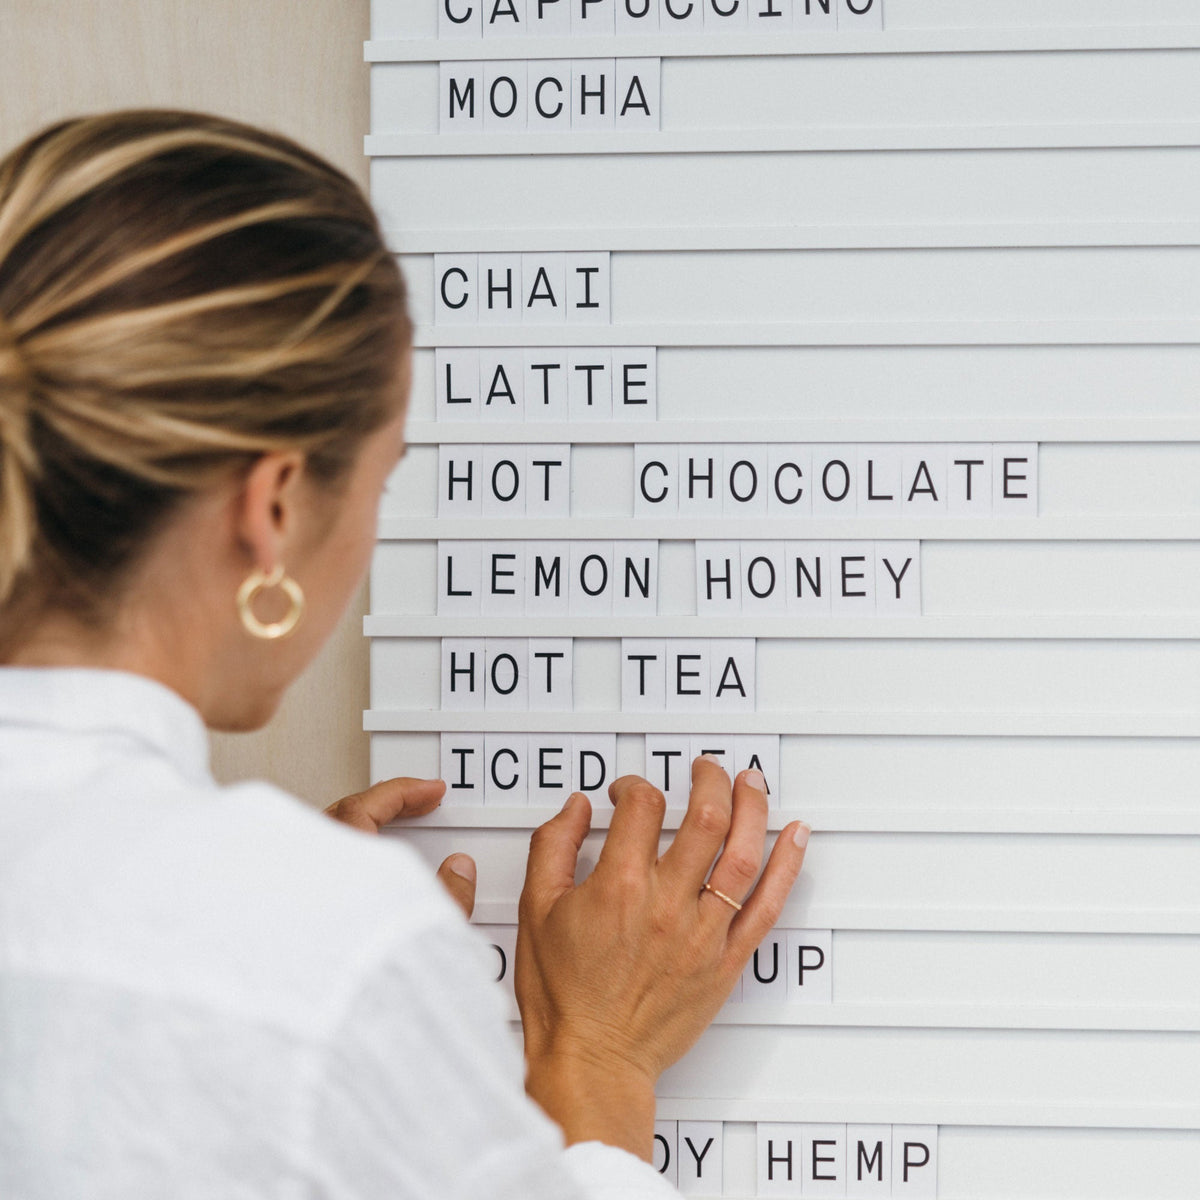 CAPPUCCINO
MOCHA
CHAI
LATTE
HOT CHOCOLATE
LEMON HONEY
HOT TEA
ICED TEA
HEMP